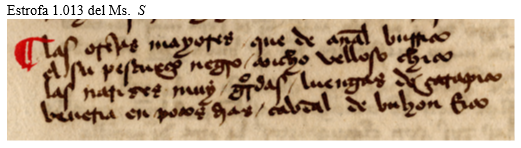 Estrofa 1.013 del Ms. S
las orejas mayores que de añal burrico
el su pescueço negro ancho velloso chico
las narizes muy gordas luengas de çarapico
beueria en pocos dias cabdal de buhon rico